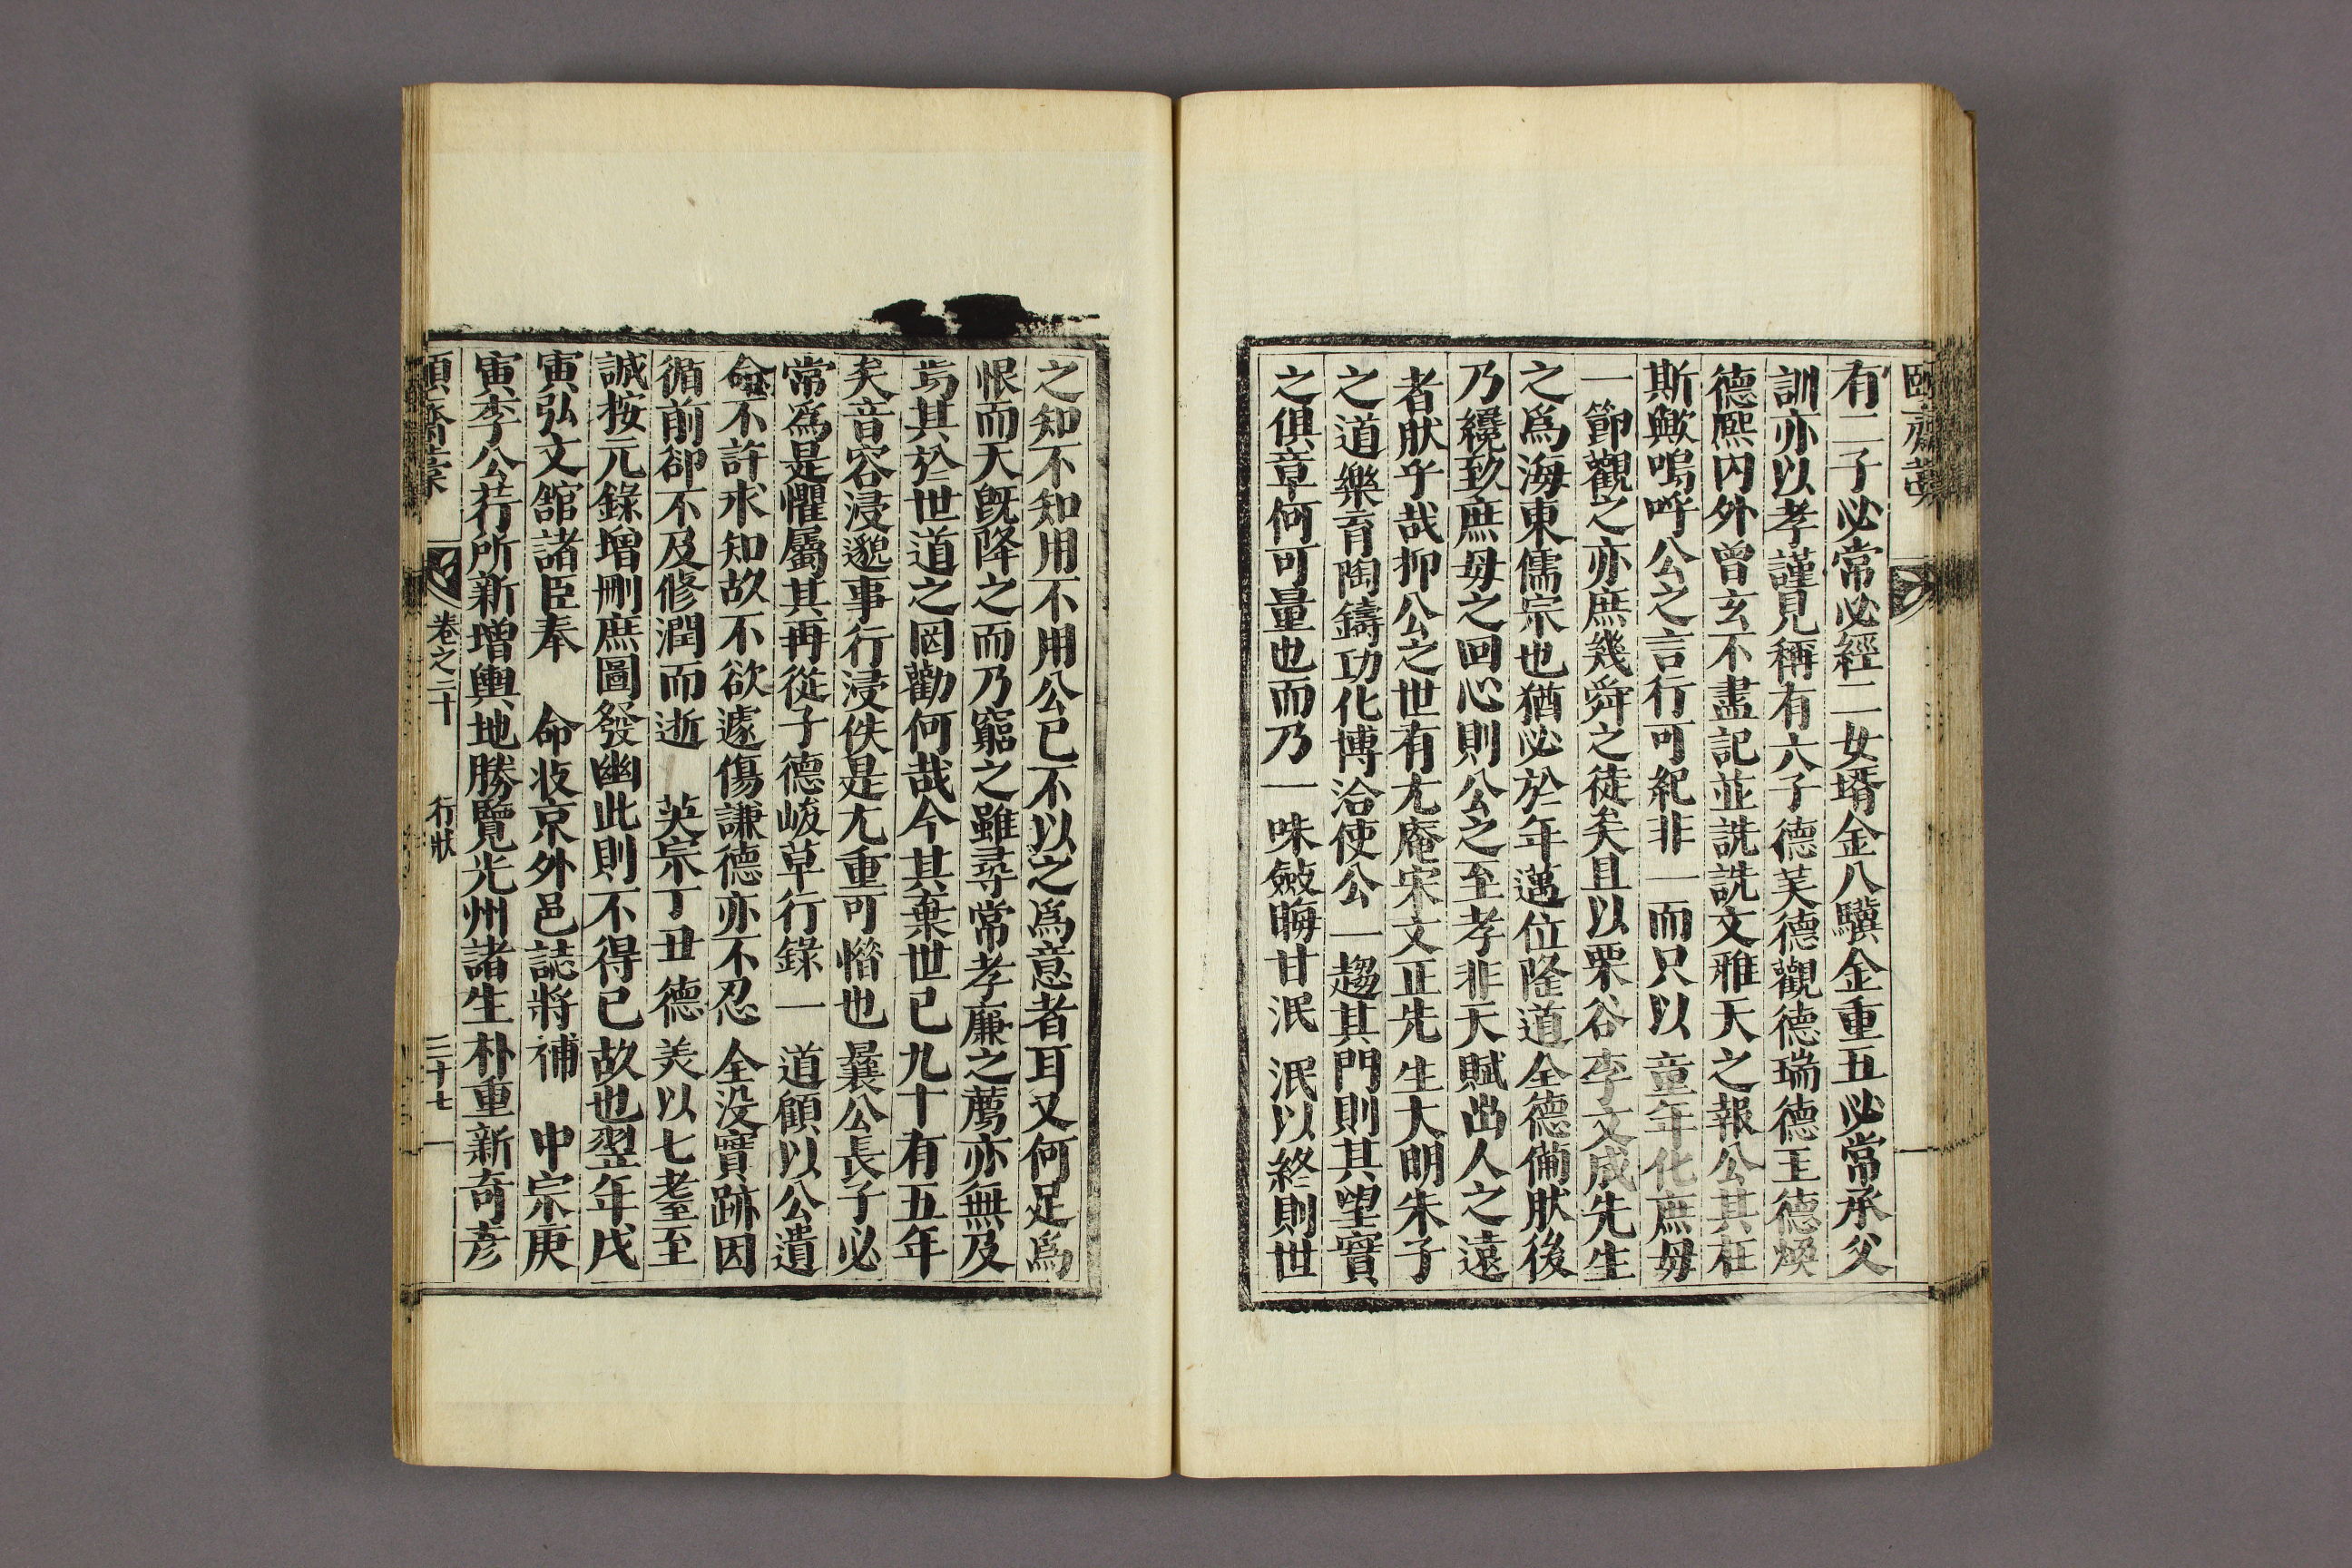 頤齋藁
有二子必常必經二女壻金八驥金重五必常承父
訓亦以孝謹見稱有六子德芙德觀德瑞德玉德煥
德熙內外曾玄不盡記並詵詵文雅天之報公其在
斯歟嗚呼公之言行可紀非一而只以童年化庶母
一節觀之亦庶幾舜之徒矣且以栗谷李文成先生
之爲海東儒宗也猶必於年邁位隆道全德備肰後
乃纔致庶母之回心則公之至孝非天賦出人之遠
者肰乎哉抑公之世有尤庵宋文正先生大明朱子
之道樂育陶鑄功化博洽使公一趨其門則其望實
之俱章何可量也而乃一味斂晦甘泯泯以終則世
之知不知用不用公已不以之爲意者耳又何足爲
恨而天旣降之而乃窮之雖尋常孝廉之薦亦無及
焉其於世道之罔勸何哉今其棄世已九十有五年
矣音容浸邈事行浸佚是尤重可惜也曩公長子必
常爲是懼屬其再從子德峻草行錄一道顧以公遺
命不許求知故不欲遽傷謙德亦不忍全沒實跡因
循前卻不及修潤而逝　英宗丁丑德美以七耋至
誠按元錄增刪庶圖發幽此則不得已故也翌年戊
寅弘文舘諸臣奉　命收京外邑誌將補　中宗庚
寅李公荇所新增輿地勝覽光州諸生朴重新奇彦
頤齋藁　卷之二十　行狀　三十七